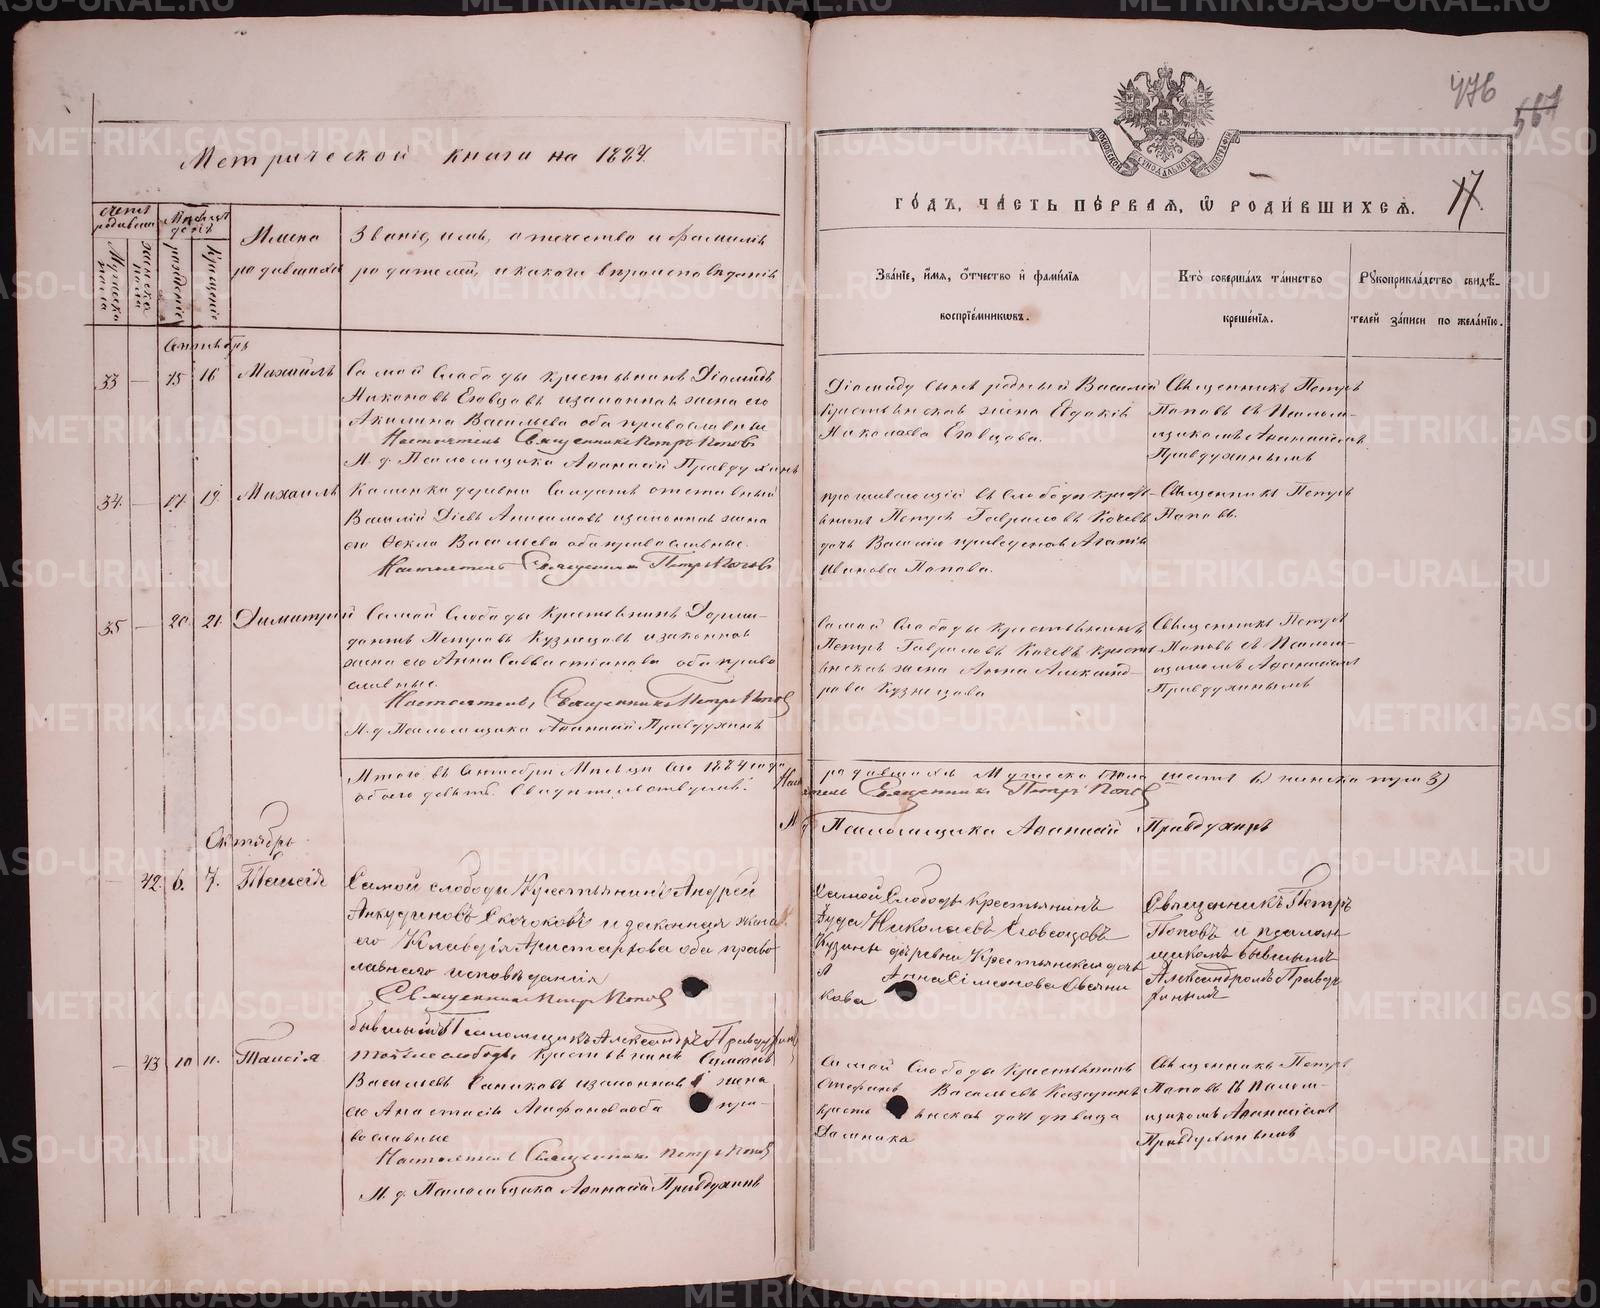 Метрической книги на 1884.
476
567
17
МОСКОВСКОЙ СѴНОДАЛЬНОЙ ТИПОГРАФІИ
ГОДЪ, ЧАСТЬ ПЕРВАЯ, Ѡ РОДИВШИХСЯ.
Счетъ родивших
Мужеска пола
Женска пола
Мѣсяцъ день
рожденіе
Крещеніе
Имена
родившихъ
Званіе, имъ, отчество и фамилія
родителей, и какого вѣроисповѣданія
Званіе, имя, отчество и фамилія
воспріемниковъ.
Кто совершалъ таинство
крещенія.
Рукоприкладство свидѣ-
телей записи по желанію.
Сентябрь
33 — 15 16 Михаилъ
Самой Слободы крестьянинъ Діомидъ
Никоновъ Еговцовъ и законная жена его
Акилина Васильева оба православные
Настоятель Священникъ Петръ Поповъ
И. д. Псаломщика Афанасій Правдухинъ
Діомиду сынъ родный Василій
Крестьянская жена Евдокія
Николаева Еговцова.
Священникъ Петръ
Поповъ съ Псалом-
щикомъ Афанасіемъ
Правдухинымъ
34. — 17. 19. Михаилъ
Каменка деревни Солдатъ отставный
Василій Діевъ Анисимовъ и законная жена
его Ѳекла Васильева оба православные.
Настоятель Священникъ Петръ Поповъ
проживающій въ Слободѣ крест-
ьянинъ Петръ Гавриловъ Кочевъ
дочь Василія приведенная Агапія
Иванова Попова.
Священникъ Петръ
Поповъ.
35 — 20. 21. Димитрій
Самой Слободы Крестьянинъ Дорми-
донтъ Петровъ Кузнецовъ и законная
жена его Анна Савастіанова оба право-
славные.
Настоятель, Священникъ Петръ Поповъ
И. д. Псаломщика Афанасій Правдухинъ
Самой Слободы крестьянинъ
Петръ Гавриловъ Кочевъ крест-
ьянская жена Анна Александ-
рова Кузнецова
Священникъ Петръ
Поповъ съ Псалом-
щикомъ Афанасіемъ
Правдухинымъ
Итого въ Сентябрѣ Мѣсяцѣ сего 1884 года
обоего девять. Свидѣтельствуемъ:
родившихъ Мужеска пола шесть 6) женска три 3)
Настоятель Священникъ Петръ Поповъ
И. д. Псаломщика Афанасій Правдухинъ
Октябрь
— 42. 6. 7. Таисія
Самой слободы Крестьянинъ Андрей
Анкудиновъ Скочковъ и законная жена
его Клавдія Аристархова оба право-
славнаго исповѣданія
Священникъ Петръ Поповъ
бывшый Псаломщикъ Александръ Правдухинъ
Самой Слободы крестьянинъ
Іуда Николаевъ Еговцовъ
Кузины деревни Крестьянская дочь
Анна Симеонова Овчинни
кова
Священникъ Петръ
Поповъ и псалом
щикомъ бывшимъ
Александромъ Правду
хинымъ
— 43 10 11. Таисія
Той же слободы крестьянинъ Симеонъ
Васильевъ Санниковъ и законная жена
его Анастасія Агафонова оба пра-
вославные
Настоятель Священникъ Петръ Поповъ
И. д. Псаломщика Афанасій Правдухинъ
Самой Слободы Крестьянинъ
Стефанъ Васильевъ Казаринъ
кресть янская дочь девица
Домника
Священникъ Петръ
Поповъ съ Псалом-
щикомъ Афанасіемъ
Правдухинымъ
METRIKI.GASO-URAL.RU